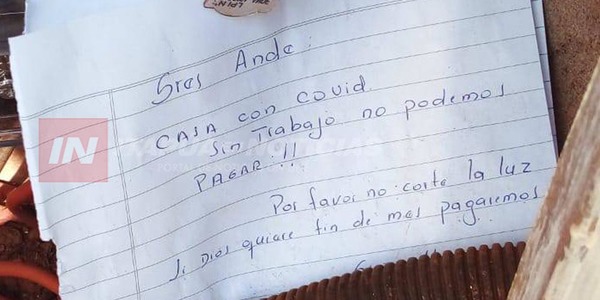 Sres Ande:
CASA con covid
Sin Trabajo no podemos
PAGAR!!
Por favor no corte la luz
Si Dios quiere fin de mes pagaremos
IN